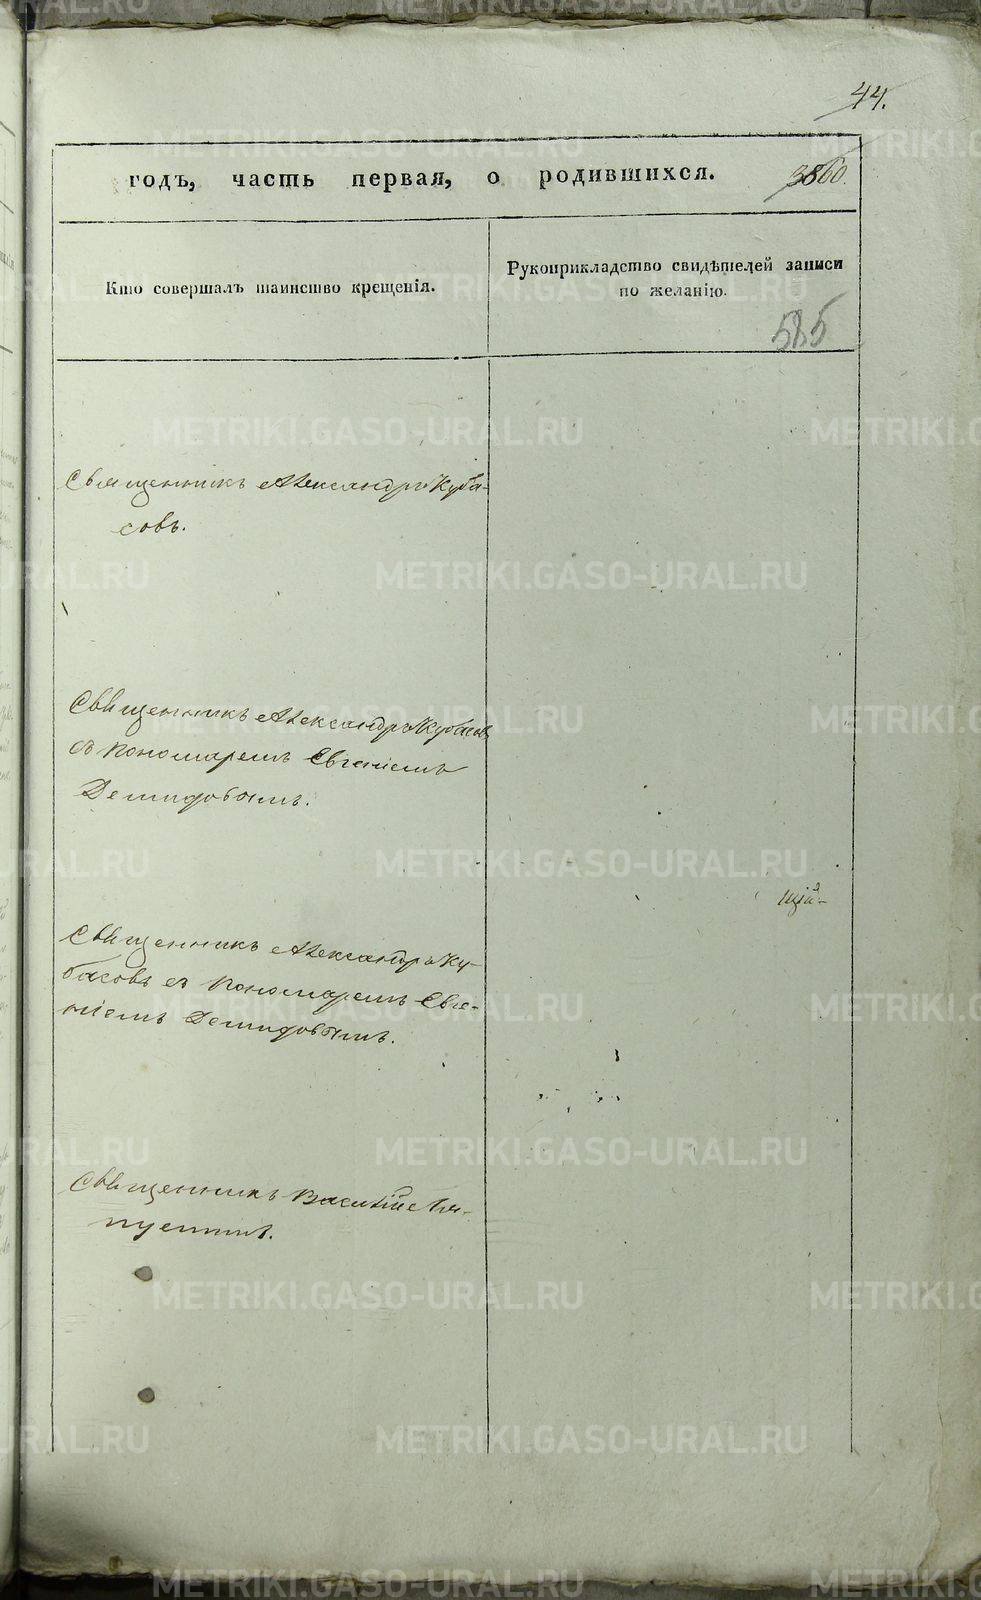 44.
годъ, часть первая, о родившихся.
Кто совершалъ таинство крещенія.
Рукоприкладство свидѣтелей записи
по желанію.
585
Священникъ Александръ Куба-
совъ.
Священникъ Александръ Кубасовъ
съ пономаремъ Евгеніемъ
Демидовымъ.
Священникъ Александръ Ку-
басовъ съ пономаремъ Евге-
ніемъ Демидовымъ.
щій-
Священникъ Василій
METRIKI.GASO-URAL.RU